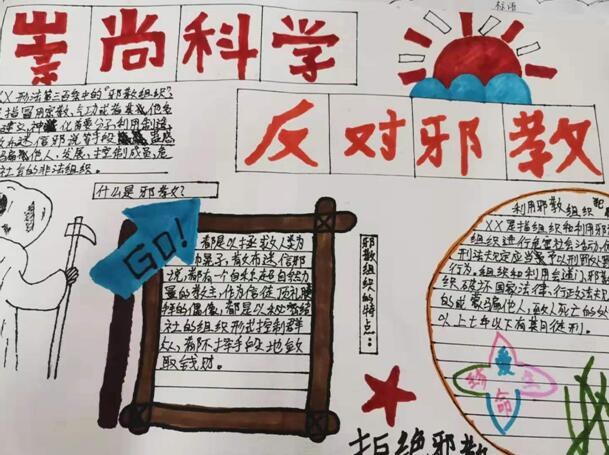 标语
崇尚科学
反对邪教
XX刑法第三百条中的“邪教组织”
指冒用宗教、气功或者其他名
建立，神化首要分子，利用制造
布迷信邪说等手段
骗他人，发展、控制成员，危
社会的非法组织。
什么是邪教？
GO!
都是以拯救人类为
幌子，散布迷信邪
说，都有一个自称超自然力
量的教主，作为信徒顶礼膜
拜的偶像，都是以秘密结
社的组织形式控制群
众，都不择手段地敛
取钱财。
邪教组织的特点：
利用邪教组织
XX是指组织和利用邪
组织进行危害社会活动
刑法规定应当
行为，组织和利用会道门、邪教
织破坏国家法律、行政法
的或蒙骗他人，致人死亡的
以上七年以下有期徒刑。
珍爱生命
拒绝邪教